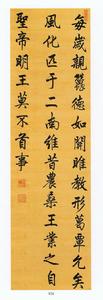 每歲親蠶德如關雎教形葛覃允矣
風化匹于二南維昔農桑王業之自
聖帝明王莫不首事